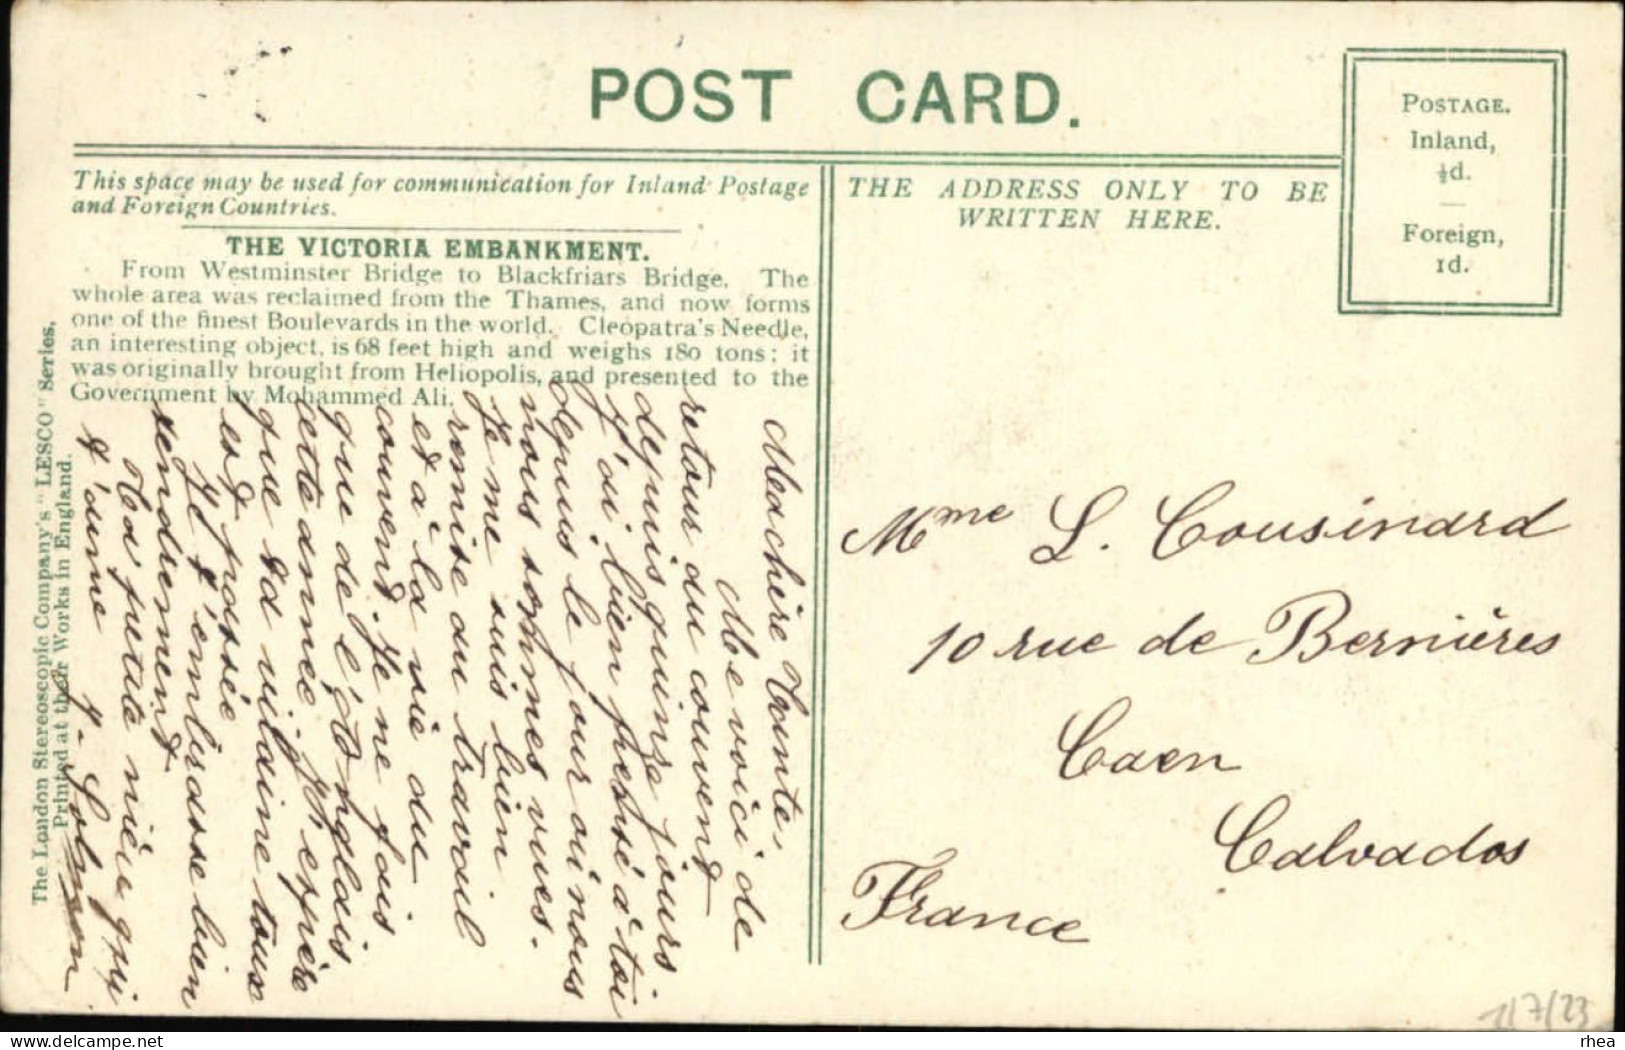 POST CARD.
This space may be used for communication for Inland Postage
and Foreign Countries.
THE VICTORIA EMBANKMENT.
From Westminster Bridge to Blackfriars Bridge. The
whole area was reclaimed from the Thames, and now forms
one of the finest Boulevards in the world. Cleopatra's Needle,
an interesting object, is 68 feet high and weighs 180 tons: it
was originally brought from Heliopolis, and presented to the
Government by Mohammed Ali.
Ma chère Tante,
Me voici de
retour du couvent
depuis quinze jours
J'ai bien pensé à toi
depuis le jour où nous
nous sommes vues.
Je me suis bien
remise au travail
et à la vie du
couvent. Je ne fais
que de l'anglais
cette année. J'espère
que ta vilaine toux
est passée
Je t'embrasse bien
tendrement
Ta petite nièce qui
t'aime
The London Stereoscopic Company's "LESCO" Series.
Printed at their Works in England.
THE ADDRESS ONLY TO BE
WRITTEN HERE.
POSTAGE.
Inland,
½d.
Foreign,
1d.
Mme L. Cousinard
10 rue de Bernières
Caen
Calvados
France
1/7/23
rhea